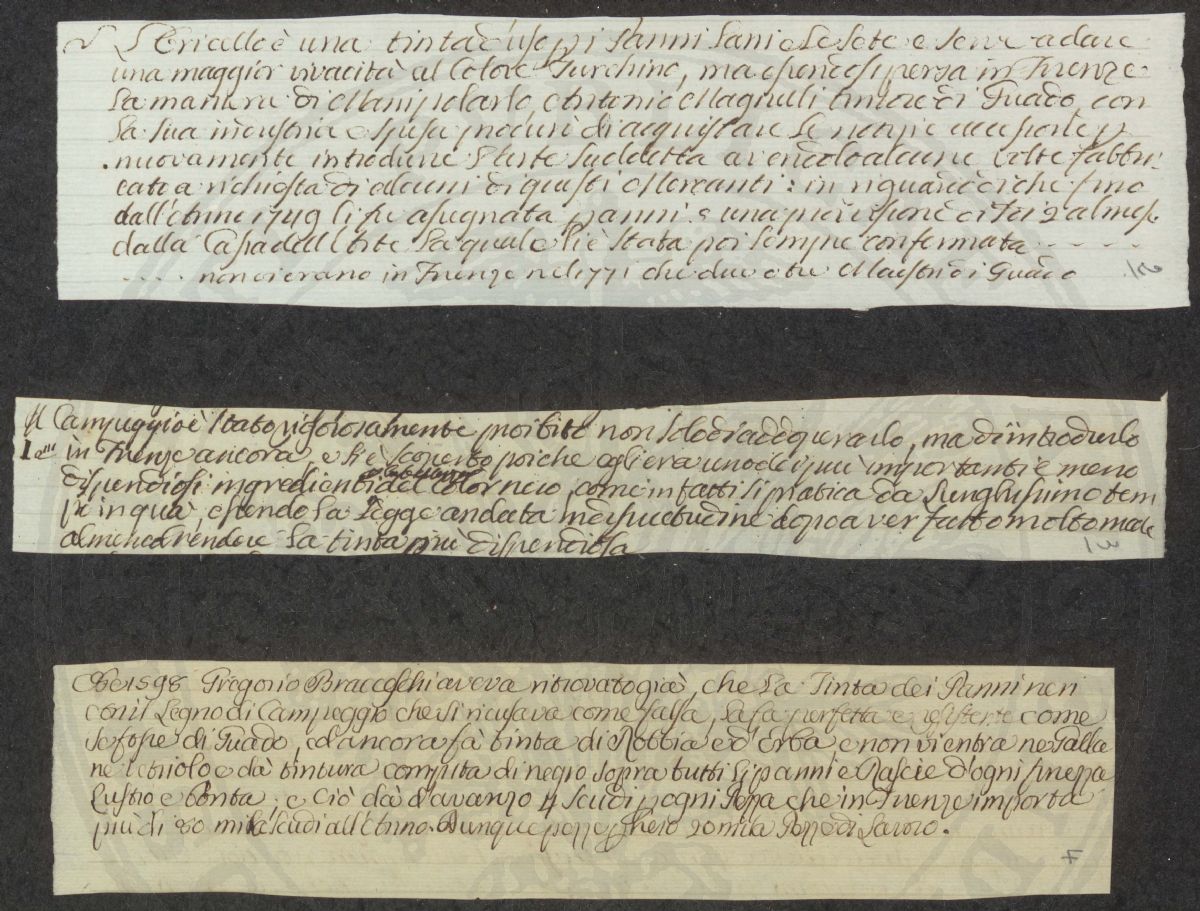 L'Oricello è una tinta d'uso pi Panni Lani e le Sete e serve a dare
una maggior vivacità al Colore Turchino, ma essendosi persa in Firenze
la maniera di Manipolarlo, Antonio Magnelli tintore di Guado, con
la sua industria e spese procurò di acquistare le notizie necessarie p
nuovamente introdurre l'Arte suddetta avendolo alcune volte fabbri-
cato a richiesta di alcuni di questi Mercanti: in riguardo di che fino
dall'Anno 1749 li fu assegnata panni una provvisione di 2 al mese
dalla Cassa dell'Arte la quale li è stata poi sempre confermata
non vi erano in Firenze nel 1771 che due o tre Maestri di Guado
2/.
Il Campeggio è stato rigorosamente proibito non solo di adoperarlo, ma di introdurlo
in Firenze ancora, e si è scoperto poiche egli era uno dei più importanti e meno
dispendiosi ingredienti del Color nero, come infatti si pratica da lunghissimo tem
pi in qua, essendo la Legge andata in dissuetudine dopo aver fatto molto male
almeno a rendere la tinta più dispendiosa
3/
1598 Gregorio Bracceschi aveva ritrovato già, che la Tinta dei Panni neri
con il Legno di Campeggio che si ricusava come falsa, la fa perfetta e resistente come
se fosse di Guado, ed ancora fà tinta di Robbia ed Erba e non vi entra ne Galla
ne Vetriolo e dà tintura compita di negro sopra tutti li panni e Rascie d'ogni finezza
Lustro e bontà, e ciò dà d'avanzo 4 scudi p ogni Pezza che in Firenze importa
più di 80 mila scudi all'Anno. Dunque 20 mila Pezze di Lavoro.
4